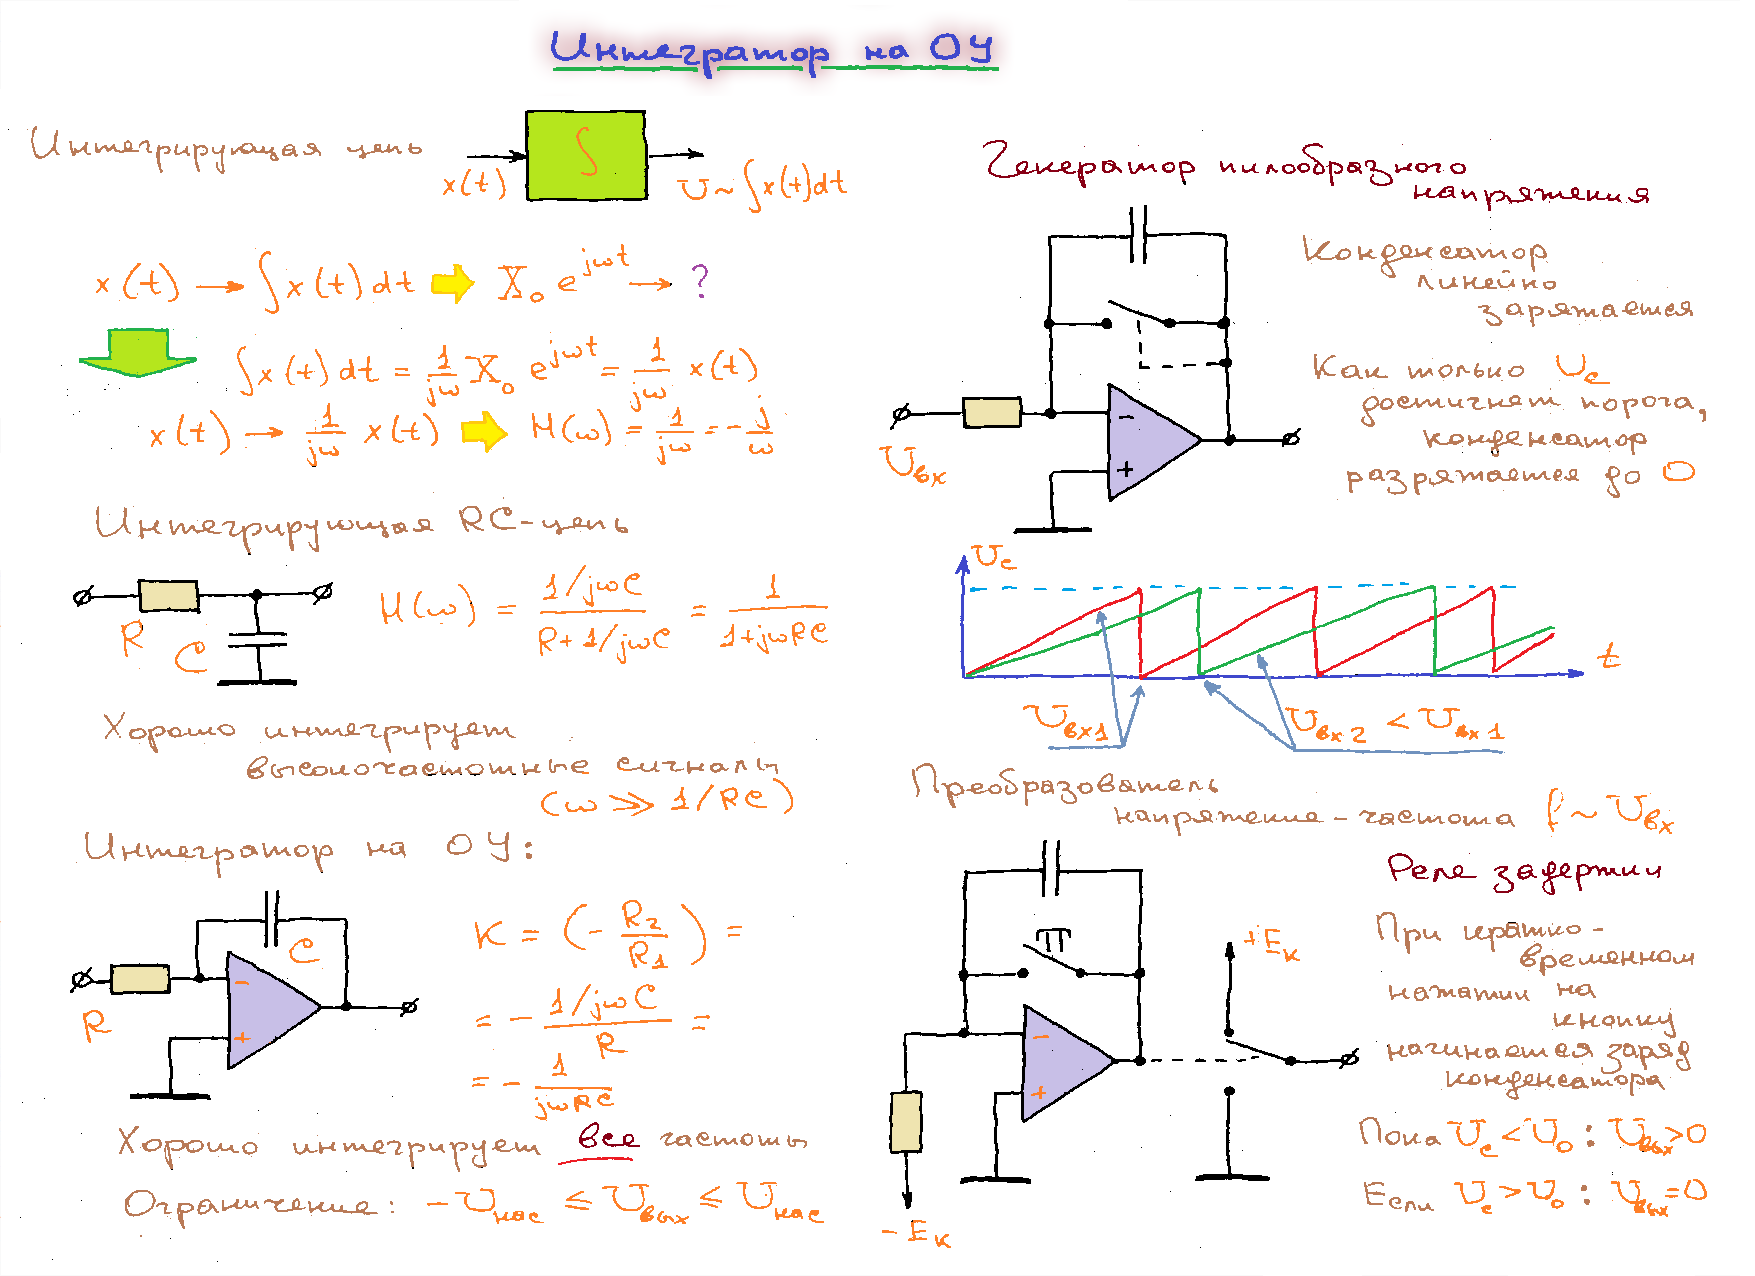 Интегратор на ОУ
Интегрирующая цепь
∫
x(t)
U ~ ∫x(t)dt
x(t) → ∫x(t)dt ⇒ X₀ e^{jωt} → ?
∫x(t)dt = 1/jω X₀ e^{jωt} = 1/jω x(t)
x(t) → 1/jω x(t) ⇒ H(ω) = 1/jω = -j/ω
Интегрирующая RC-цепь
R
C
H(ω) = (1/jωC)/(R+1/jωC) = 1/(1+jωRC)
Хорошо интегрирует
высокочастотные сигналы
(ω ≫ 1/RC)
Интегратор на ОУ:
C
R
-
+
K = (-R₂/R₁) =
= - (1/jωC)/R =
= - 1/jωRC
Хорошо интегрирует все частоты
Ограничение: -Uнас ≤ Uвых ≤ Uнас
Генератор пилообразного
напряжения
Конденсатор
линейно
заряжается
Как только Uc
достигнет порога,
конденсатор
разряжается до 0
Uвх
-
+
Uc
t
Uвх1
Uвх2 < Uвх1
Преобразователь
напряжение-частота f ~ Uвх
Реле задержки
При кратко-
временном
нажатии на
кнопку
начинается заряд
конденсатора
Пока Uc < U₀ : Uвых>0
Если Uc > U₀ : Uвых=0
+Eк
-
+
-Eк